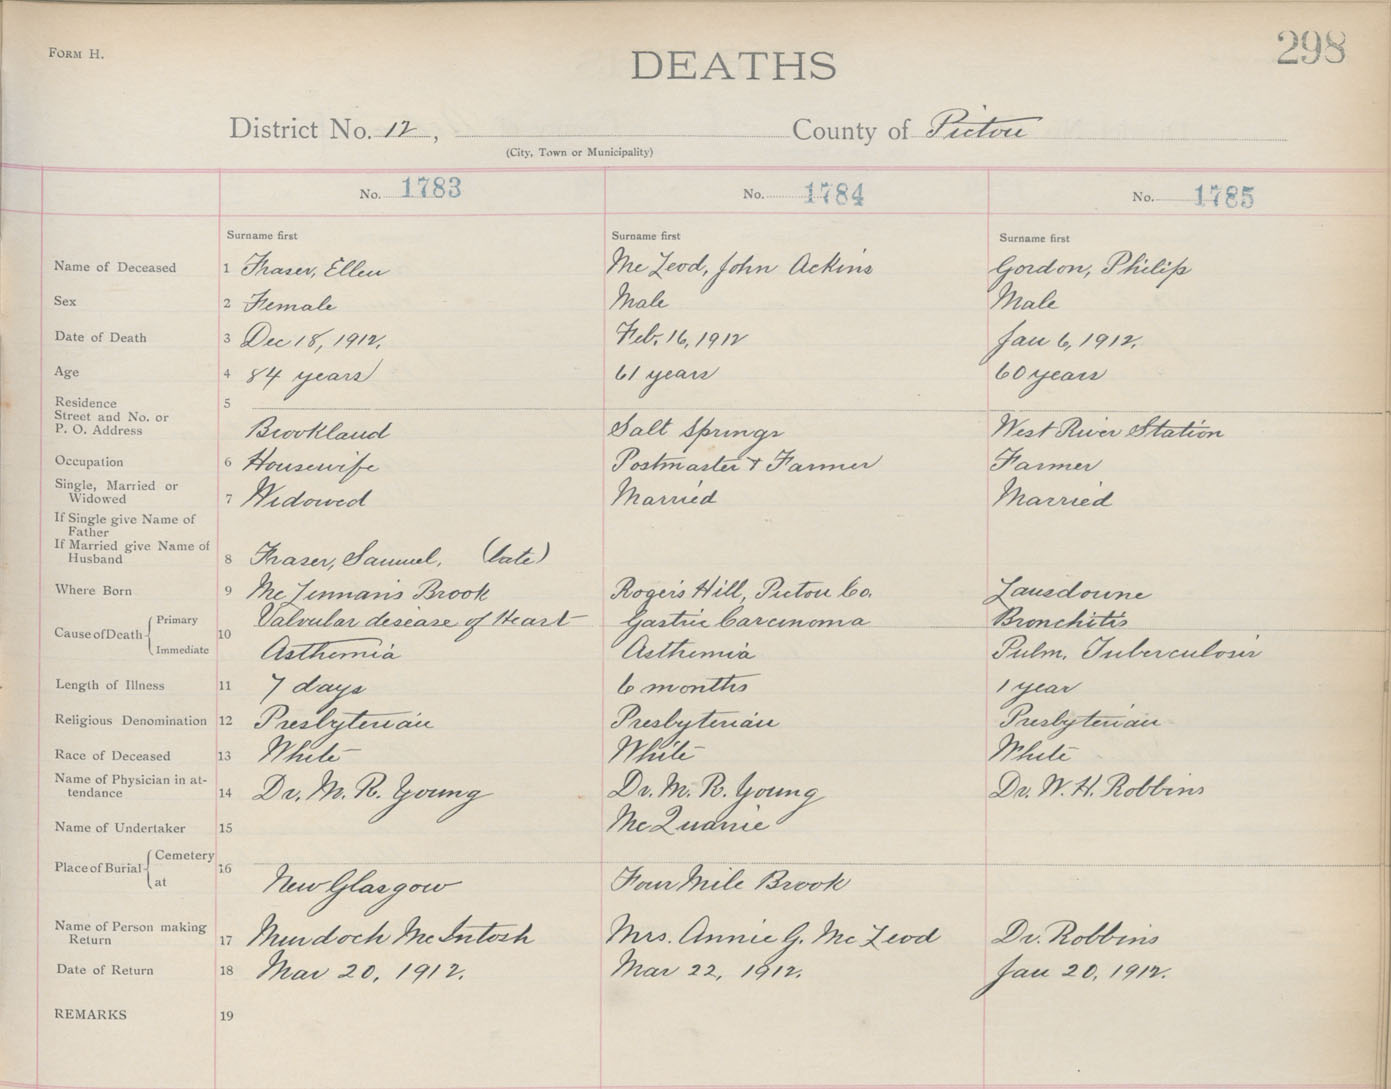 298
FORM H.
DEATHS
District No. 12, County of Pictou
(City, Town or Municipality)
No. 1783 No. 1784 No. 1785
Surname first Surname first Surname first
Name of Deceased 1 Fraser, Ellen McLeod, John Ackins Gordon, Philip
Sex 2 Female Male Male
Date of Death 3 Dec 18, 1912. Feb. 16, 1912 Jan 6, 1912.
Age 4 84 years 61 years 60 years
Residence 5
Street and No. or
P. O. Address Brookland Salt Springs West River Station
Occupation 6 Housewife Postmaster & Farmer Farmer
Single, Married or
Widowed 7 Widowed Married Married
If Single give Name of
Father
If Married give Name of
Husband 8 Fraser, Samuel. (late)
Where Born 9 McLennan's Brook Roger's Hill, Pictou Co. Lansdowne
Cause of Death Primary 10 Valvular disease of Heart Gastric Carcinoma Bronchitis
Immediate Asthemia Asthemia Pulm. Tuberculosis
Length of Illness 11 7 days 6 months 1 year
Religious Denomination 12 Presbyterian Presbyterian Presbyterian
Race of Deceased 13 White White White
Name of Physician in at-
tendance 14 Dr. M. R. Young Dr. M. R. Young Dr. W. H. Robbins
Name of Undertaker 15 McQuarrie
Place of Burial Cemetery 16
at New Glasgow Four Mile Brook
Name of Person making
Return 17 Murdoch McIntosh Mrs. Annie G. McLeod Dr. Robbins
Date of Return 18 Mar 20, 1912. Mar 22, 1912. Jan 20, 1912.
REMARKS 19